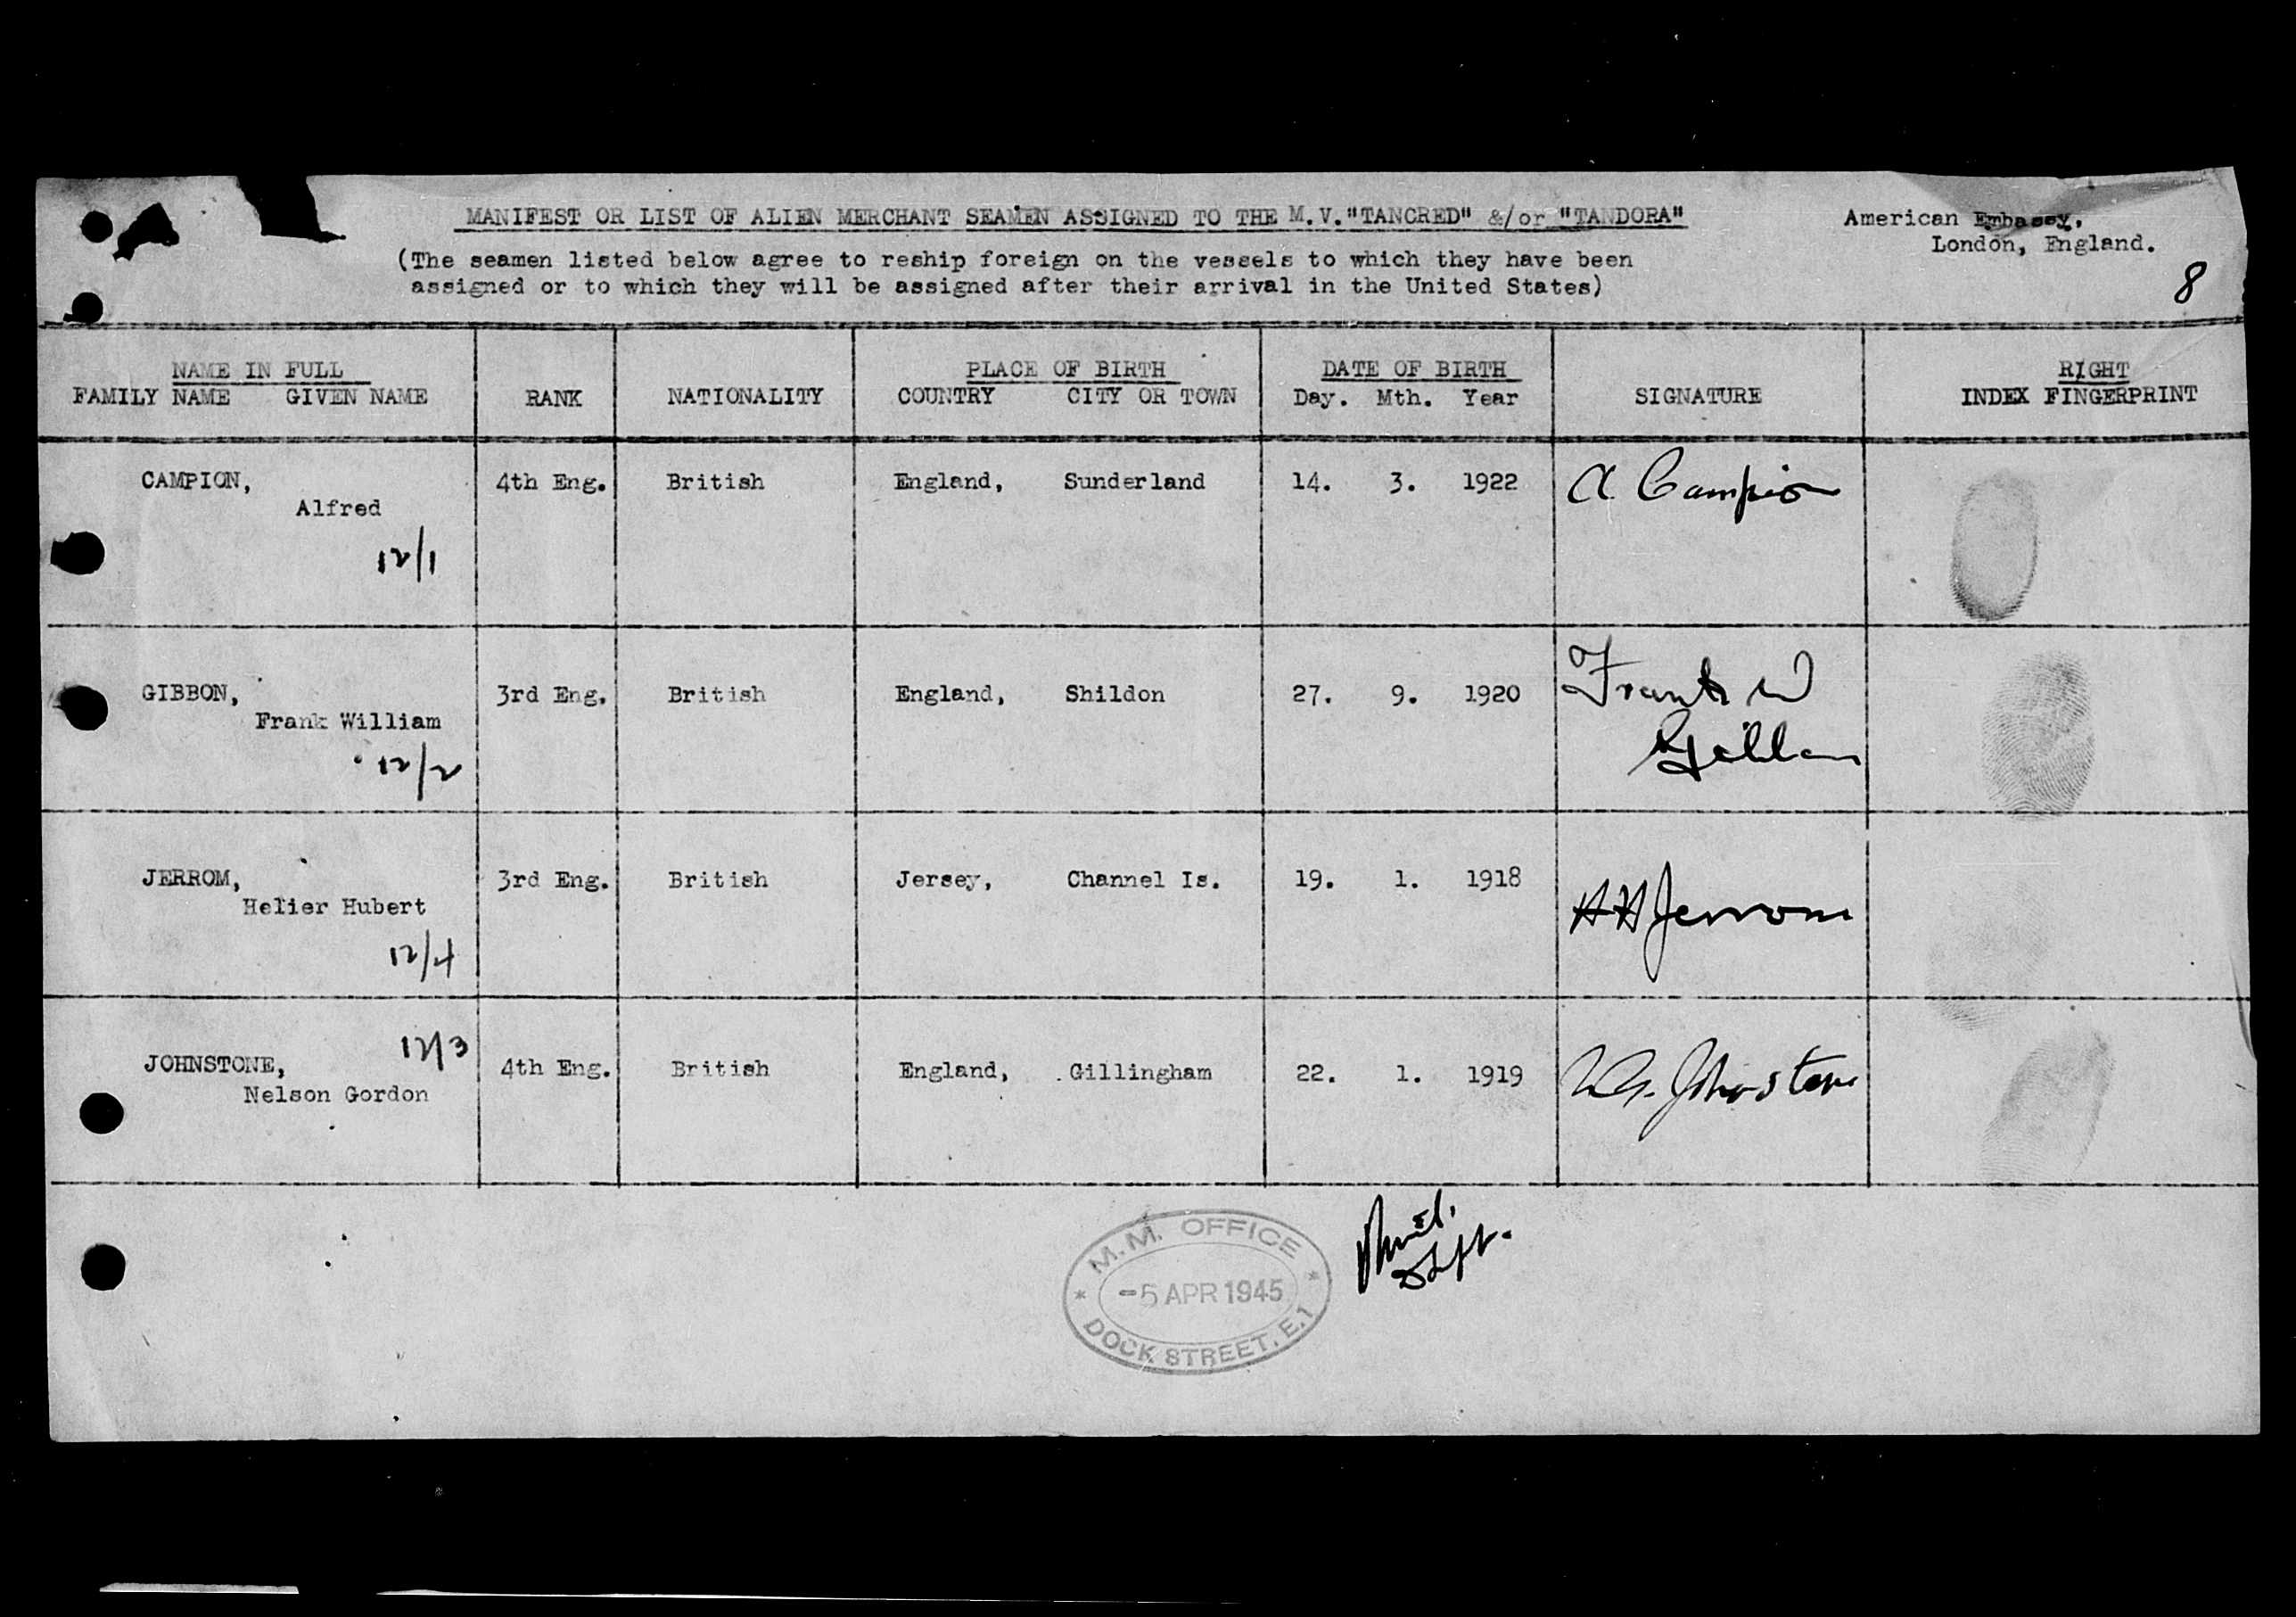 MANIFEST OR LIST OF ALIEN MERCHANT SEAMEN ASSIGNED TO THE M.V."TANCRED" &/or "TANDORA"
American Embassy,
London, England.
(The seamen listed below agree to reship foreign on the vessels to which they have been
assigned or to which they will be assigned after their arrival in the United States)
8
NAME IN FULL PLACE OF BIRTH DATE OF BIRTH RIGHT
FAMILY NAME GIVEN NAME RANK NATIONALITY COUNTRY CITY OR TOWN Day. Mth. Year SIGNATURE INDEX FINGERPRINT
CAMPION, 4th Eng. British England, Sunderland 14. 3. 1922 A. Campion
Alfred
12/1
GIBBON, 3rd Eng. British England, Shildon 27. 9. 1920 Frank W
Frank William Gibbon
12/2
JERROM, 3rd Eng. British Jersey, Channel Is. 19. 1. 1918 HHJerrom
Helier Hubert
12/4
12/3
JOHNSTONE, 4th Eng. British England, Gillingham 22. 1. 1919 N.G. Johnstone
Nelson Gordon
M.M. OFFICE
-5 APR 1945
DOCK STREET, E.1